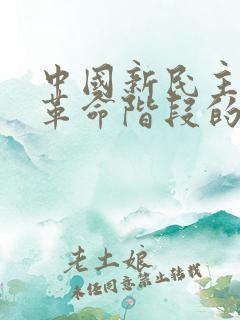 中國新民主
革命階段的
老土娘
未经同意禁止转载